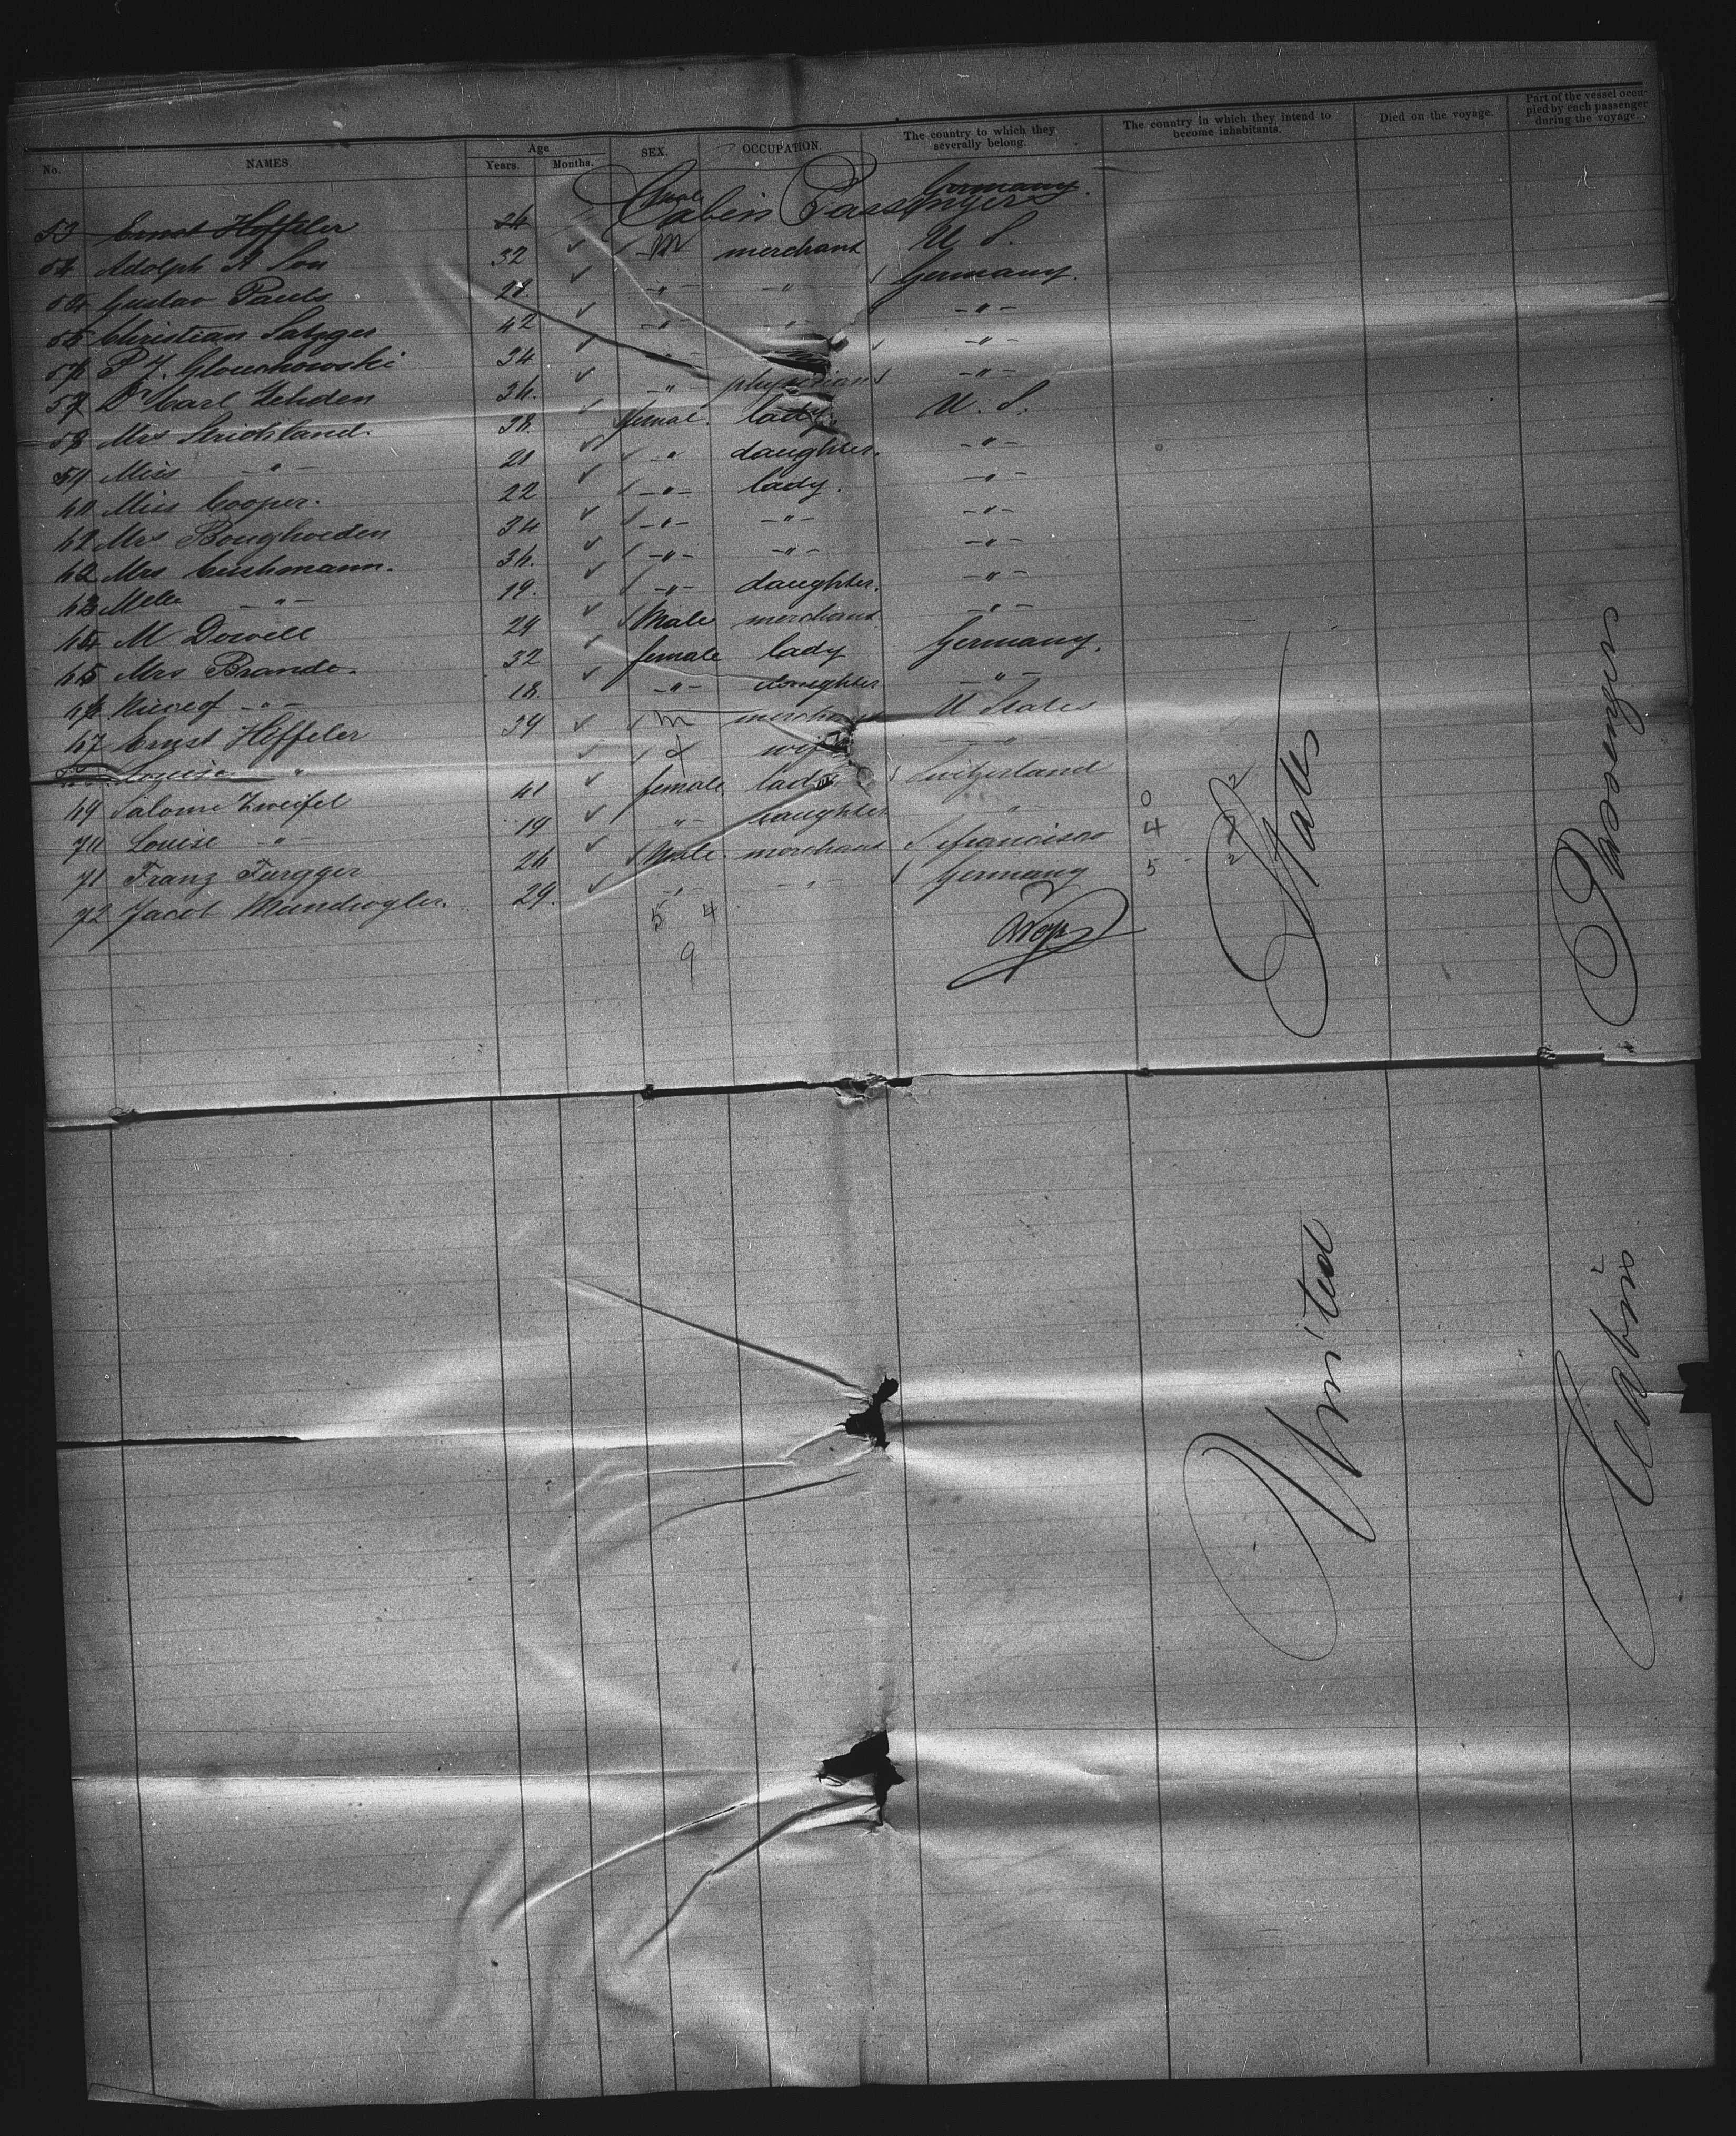 No. NAMES. Age Years. Months. SEX. OCCUPATION. The country to which they severally belong. The country in which they intend to become inhabitants. Died on the voyage. Part of the vessel occupied by each passenger during the voyage.
Cabin Passengers
53 Ernst Hoffeler 34 male Germany.
54 Adolph A Son 32 M merchant U. S.
Gustav Pauls 28. -"- -"- Germany.
Christian Satzger 42 -"- -"- -"-
P. J. Glouchowski 34 -"- -"-
57 Dr Carl Zehden 36. -"- physician -"-
58 Mrs Strickland. 38. female. lady. U. S.
59 Miss -"- 21 -"- daughter. -"-
60 Miss Cooper. 22 -"- lady. -"-
62 Mrs 34 -"- -"- -"-
62 Mrs Cushmann. 36. -"- -"- -"-
63 Melle -"- 19. -"- daughter. -"-
64 M Dowell 29 Male merchant -"-
65 Mrs Brande. 32 female lady Germany.
-"- 18. -"- daughter -"-
67 Ernst Höffeler 39 M merchant U States
Louise " wife "
69 Salome Zweifel 41 female lady Switzerland
70 Louise -"- 19 -"- daughter "
71 Franz Furgger 26 Male merchant Francisco
72 Jacob 29. -"- -"- Germany
0
4
5
5 4
9
United States
Cabin Passengers